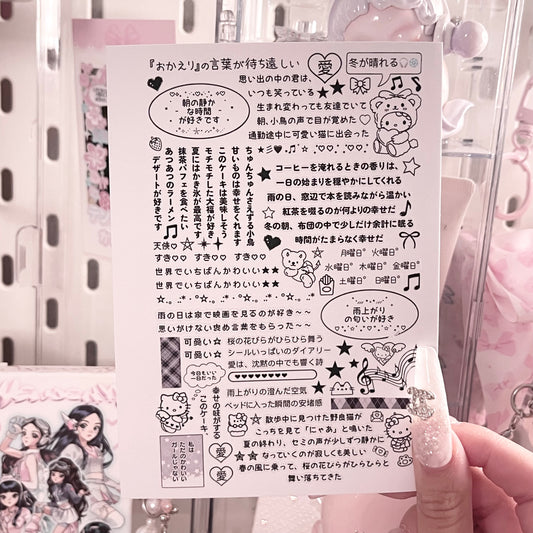 『おかえり』の言葉が待ち遠しい
愛
冬が晴れる
朝の静か
な時間
が好きです
思い出の中の君は、
いつも笑っている★★
生まれ変わっても友達でいて
朝、小鳥の声で目が覚めた♡
通勤途中に可愛い猫に出会った
ちゅんちゅんさえずる小鳥
甘いものは幸せをくれます
このケーキは美味しそう
モチモチした大福が好き
夏にはかき氷が最高です
抹茶パフェを食べたい
あつあつのラーメン
デザートが好きです
コーヒーを淹れるときの香りは、
一日の始まりを穏やかにしてくれる
雨の日、窓辺で本を読みながら温かい
紅茶を啜るのが何よりの幸せだ
冬の朝、布団の中で少しだけ余計に眠る
時間がたまらなく幸せだ
天使♡
すき♡♡ すき♡♡ すき♡♡
月曜日° 火曜日°
水曜日° 木曜日° 金曜日°
土曜日° 日曜日°
世界でいちばんかわいい★★
世界でいちばんかわいい★★
雨の日は家で映画を見るのが好き～～
思いがけない褒め言葉をもらった～～
雨上がり
の匂いが好き
可愛い☆ 桜の花びらがひらひら舞う
可愛い☆ シールいっぱいのダイアリー
愛は、沈黙の中でも響く詩
今日もいい
一日だった
幸せの味がする
このケーキ
雨上がりの澄んだ空気
ベッドに入った瞬間の安堵感
私は
ただのかわいい
ガールじゃない
愛
愛
散歩中に見つけた野良猫が
こっちを見て「にゃあ」と鳴いた
夏の終わり、セミの声が少しずつ静かに
なっていくのが寂しくも美しい
春の風に乗って、桜の花びらがひらひらと
舞い落ちてきた